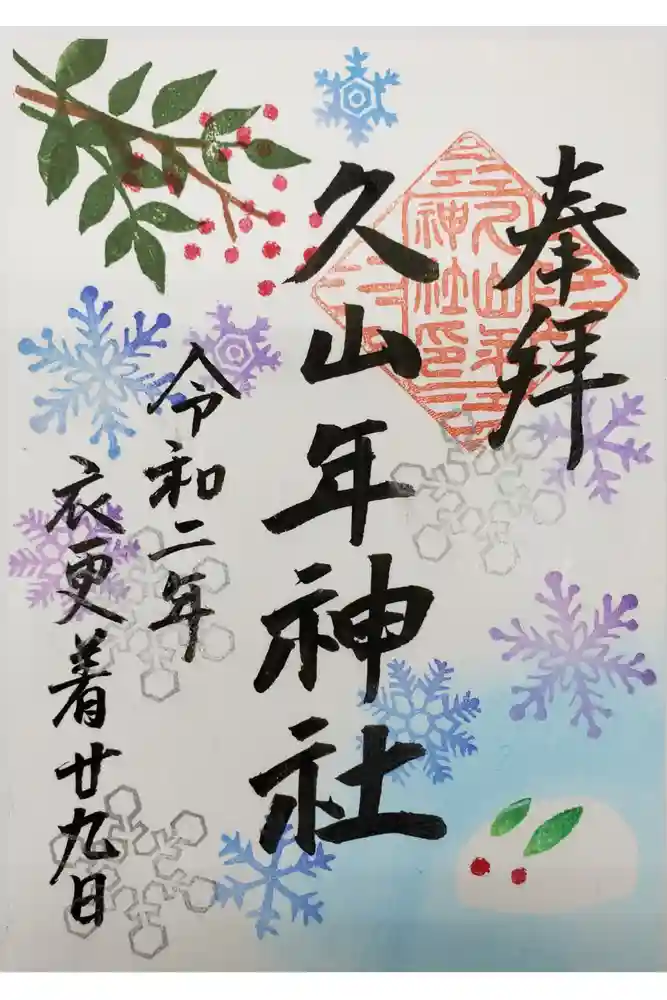 奉拝
久山年神社
久山年
神社印
令和二年
衣更着廿九日